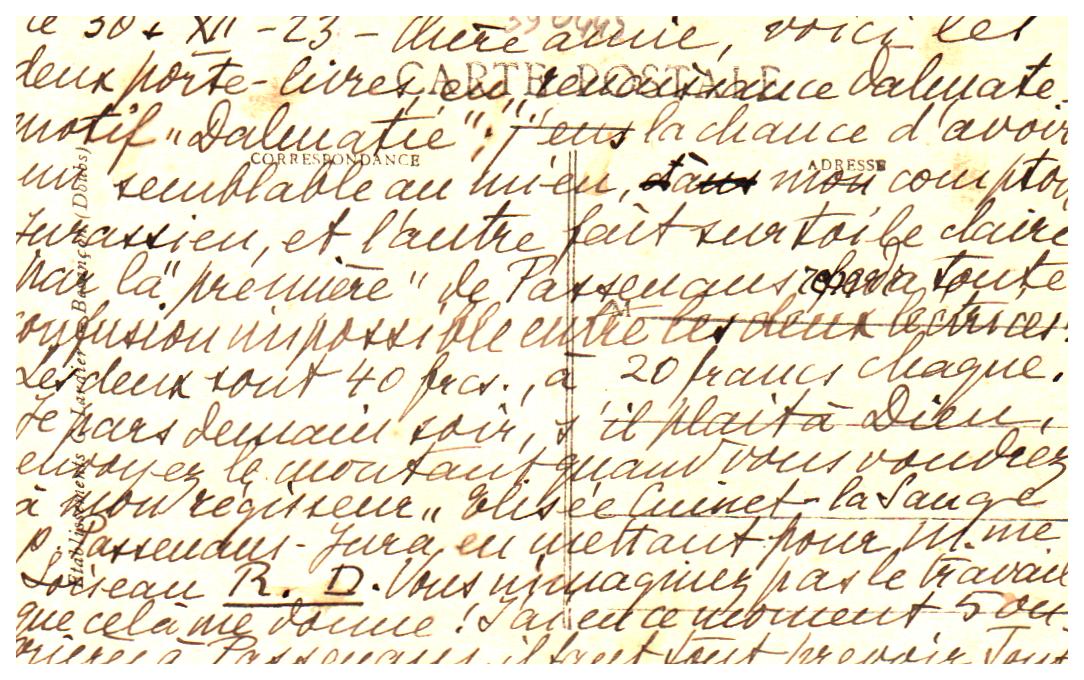 le 30 + XII - 23 - Chère amie, voici les
CARTE POSTALE
deux porte-livres, en renaissance Dalmate.
motif „Dalmatie"; j'eus la chance d'avoir
CORRESPONDANCE
ADRESSE
un semblable au mien, dans mon comptoi
jurassien, et l'autre fait sur toile claire
par la "première" de Passenans toute
confusion impossible entre les deux lectrices.
Les deux sont 40 frcs., à 20 francs chaque.
Je pars demain soir, s'il plait à Dieu,
envoyez le montant quand vous voudrez
à mon régisseur „ Elisée Cuinet - la Sauge
p. Passenans - Jura, en mettant pour M.me
Loiseau R. D. Vous n'imaginez pas le travail
que celà me donne ! J'ai en ce moment 5 ou-
vrières à Passenans, il faut tout prévoir. Tout
Etablissements C. Lardier - Besançon (Doubs)